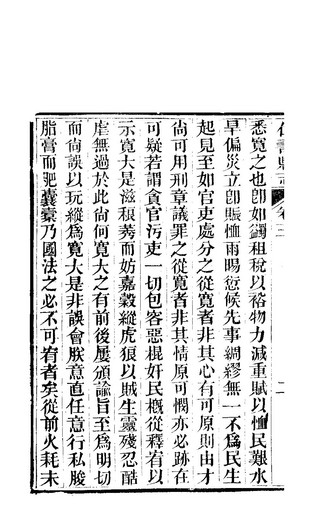 悉寛之也卽如蠲租稅以裕物力減重賦以恤民艱水
旱偏災立卽賑恤雨暘愆候先事綢繆無一不爲民生
起見至如官吏處分之從寛者非其心有可原則由才
尙可用刑章議罪之從寛者非其情原可憫亦必跡在
可疑若謂貪官污吏一切包容惡棍奸民槪從釋宥以
示寛大是滋稂莠而妨嘉穀縱虎狼以賊生靈殘忍酷
虐無過於此尙何寛大之有前後屢頒諭旨至爲明切
而尙誤以玩縱爲寛大是非誤會朕意直任意行私朘
脂膏而肥囊橐乃國法之必不可宥者矣從前火耗未